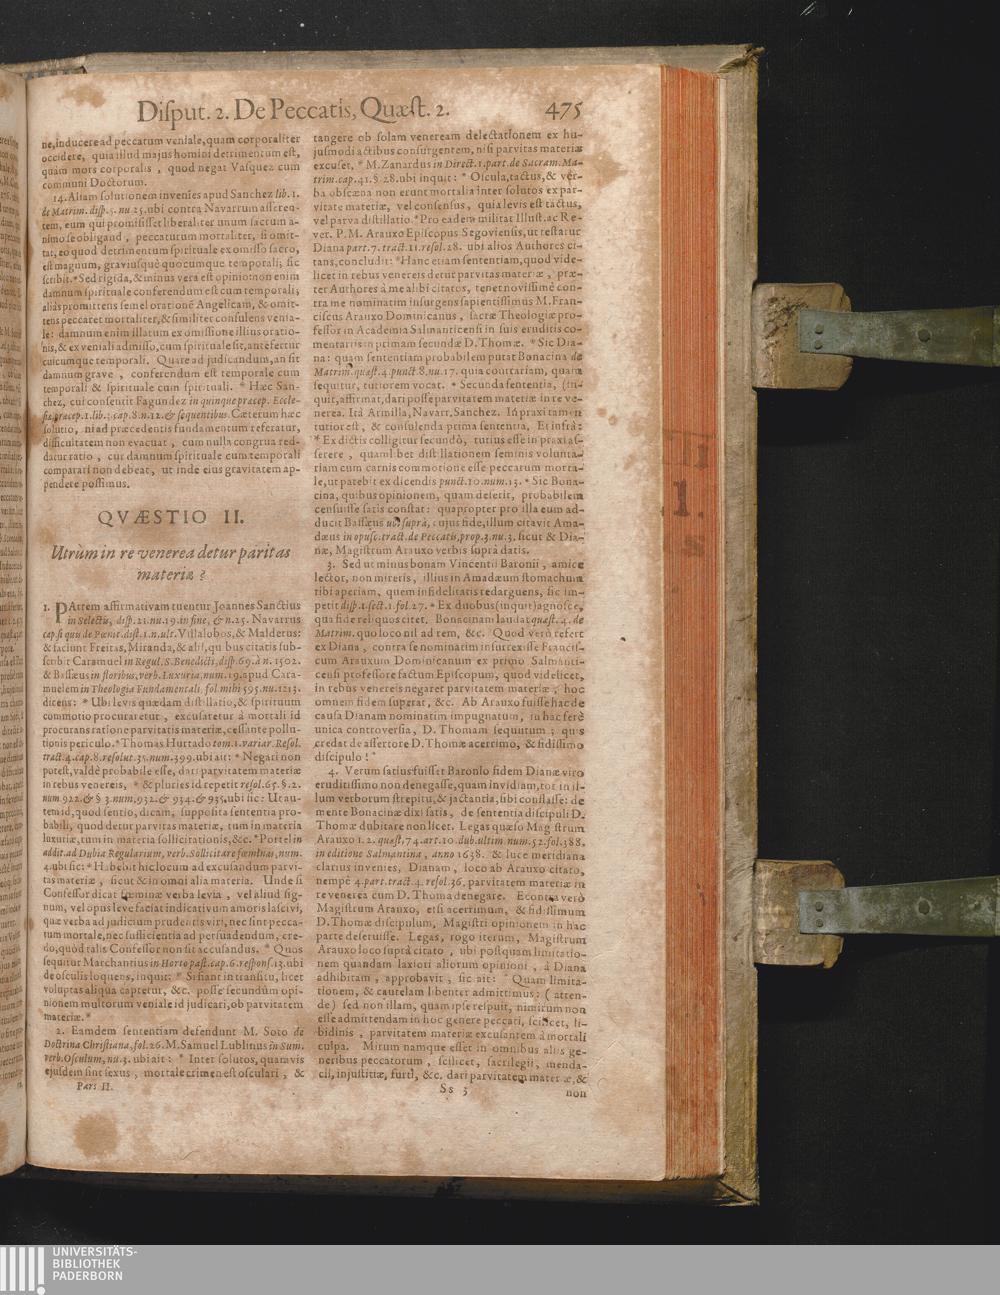 Disput. 2. De Peccatis, Quæst. 2. 475
ne, inducere ad peccatum veniale, quam corporaliter
occidere, quia illud majus homini detrimentum est,
quàm mors corporalis, quod negat Vasquez cum
communi Doctorum.
14. Aliam solutionem invenies apud Sanchez lib. 1.
de Matrim. disp. 5. nu 25. ubi contra Navarrum asseren-
tem, eum qui promisisset liberaliter unum sacrum a-
nimo se obligand, peccaturum mortaliter, si omit-
tat, eo quod detrimentum spirituale ex omisso sacro,
est magnum, graviusquè quocumque temporali; sic
scribit. * Sed rigida, & minus vera est opinio: non enim
damnum spirituale conferendum est cum temporali;
aliàs promittens semel orationē Angelicam, & omit-
tens peccaret mortaliter, & similiter consulens venia-
le: damnum enim illatum ex omissione illius oratio-
nis, & ex veniali admisso, cum spirituale sit, antefertur
cuicumque temporali. Quare ad judicandum, an sit
damnum grave, conferendum est temporale cum
temporali & spirituale cum spirituali. * Hæc San-
chez, cui consentit Fagundez in quinque præcep. Eccle-
siæ, præcep. 1. lib. cap. 8. n. 12. & sequentibus. Cæterum hæc
solutio, ni ad præcedentis fundamentum referatur,
difficultatem non evacuat, cum nulla congrua red-
datur ratio, cur damnum spirituale cum temporali
comparari non debeat, ut inde eius gravitatem ap-
pendere possimus.
QVÆSTIO II.
Utrùm in re venerea detur paritas
materiæ?
1. PArtem affirmativam tuentur Joannes Sanctius
in Selectis, disp. 21. nu. 19. in fine, & n. 25. Navarrus
cap. si quis de Pœnit. dist. 1. n. ult. Villalobos, & Malderus:
& faciunt Freitas, Miranda, & alii, quibus citatis sub-
scribit Caramuel in Regul. S. Benedicti, disp. 69. à n. 1502.
& Bassæus in floribus, verb. Luxuria, num. 19. apud Cara-
muelem in Theologia Fundamentali, fol. mihi 595. nu. 1213.
dicens: * Ubi levis quædam distillatio, & spirituum
commotio procuraretur, excusaretur à mortali id
procurans ratione parvitatis materiæ, cessante pollu-
tionis periculo. * Thomas Hurtado tom. 1. variar. Resol.
tract. 4. cap. 8. resolut. 35. num. 399. ubi ait: * Negari non
potest, valdè probabile esse, dari parvitatem materiæ
in rebus venereis, * & pluries id repetit resol. 65. §. 2.
num 922. & § 3. num. 932. & 934. & 935. ubi sic: Ut au-
tem id, quod sentio, dicam, supposita sententia pro-
babili, quod detur parvitas materiæ, tum in materia
luxuriæ, tum in materia sollicitationis, &c. * Portel in
addit. ad Dubia Regularium, verb. Sollicitare fœminas, num.
4. ubi sic: * Habebit hic locum ad excusandum parvi-
tas materiæ, sicut & in omni alia materia. Unde si
Confessor dicat fœminæ verba levia, vel aliud sig-
num, vel opus leve faciat indicativum amoris lascivi,
quæ verba ad judicium prudentis viri, nec sint pecca-
tum mortale, nec sufficientia ad persuadendum, cre-
do, quòd talis Confessor non sit accusandus. * Quos
sequitur Marchantius in Horto past. cap. 6. respons. 13. ubi
de osculis loquens, inquit: * Si fiant in transitu, licet
voluptas aliqua captetur, &c. posse secundùm opi-
nionem multorum veniale id judicari, ob parvitatem
materiæ. *
2. Eamdem sententiam defendunt M. Soto de
Doctrina Christiana, fol. 26. M. Samuel Lublinus in Sum.
verb. Osculum, nu. 4. ubi ait: * Inter solutos, quamvis
ejusdem sint sexus, mortale crimen est osculari, &
Pars II.
tangere ob solam veneream delectationem ex hu-
jusmodi actibus consurgentem, nisi parvitas materiæ
excuset. * M. Zanardus in Direct. 1. part. de Sacram. Ma-
trim. cap. 41. §. 28. ubi inquit: * Oscula, tactus, & ver-
ba obscœna non erunt mortalia inter solutos ex par-
vitate materiæ, vel consensus, quia levis est tactus,
vel parva distillatio. * Pro eadem militat Illust. ac Re-
ver. P. M. Arauxo Episcopus Segoviensis, ut testatur
Diana part. 7. tract. 11. resol. 28. ubi alios Authores ci-
tans, concludit: * Hanc etiam sententiam, quod vide-
licet in rebus venereis detur parvitas materiæ, præ-
ter Authores à me alibi citatos, tenet novissimè con-
tra me nominatim insurgens sapientissimus M. Fran-
ciscus Arauxo Dominicanus, sacræ Theologiæ pro-
fessor in Academia Salmanticensi in suis eruditis co-
mentariis in primam secundæ D. Thomæ. * Sic Dia-
na: quam sententiam probabilem putat Bonacina de
Matrim. quæst. 4. punct. 8. nu. 17. quia contrariam, quam
sequitur, tutiorem vocat. * Secunda sententia, (in-
quit, affirmat, dari posse parvitatem materiæ in re ve-
nerea. Ità Armilla, Navarr, Sanchez. In praxi tamen
tutior est, & consulenda prima sententia, Et infrà:
* Ex dictis colligitur secundò, tutius esse in praxi as-
serere, quamlibet distillationem seminis volunta-
riam cum carnis commotione esse peccatum morta-
le, ut patebit ex dicendis punct. 10. num. 13. * Sic Bona-
cina, quibus opinionem, quam deserit, probabilem
censuisse satis constat: quapropter pro illa eum ad-
ducit Bassæus ubi suprà, cujus fide, illum citavit Ama-
dæus in opusc. tract. de Peccatis, prop. 3. nu. 3. sicut & Dia-
næ, Magistrum Arauxo verbis suprà datis.
3. Sed ut minus bonam Vincentii Baronii, amice
lector, non mireris, illius in Amadæum stomachum
tibi aperiam, quem infidelitatis redarguens, sic im-
petit disp. 1. sect. 1. fol. 27. * Ex duobus (inquit) agnosce,
qua fide reliquos citet. Bonacinam laudat quæst. 4. de
Matrim. quo loco nil ad rem, &c. Quod verò refert
ex Diana, contra se nominatim insurrexisse Francis-
cum Arauxum Dominicanum ex primo Salmanti-
censi professore factum Episcopum, quod videlicet,
in rebus venereis negaret parvitatem materiæ; hoc
omnem fidem superat, &c. Ab Arauxo fuisse hac de
causa Dianam nominatim impugnatum, in hac ferè
unica controversia, D. Thomam sequutum; quis
credat de assertore D. Thomæ acerrimo, & fidissimo
discipulo! *
4. Verum satius fuisset Baronio fidem Dianæ viro
eruditissimo non denegasse, quam invidiam, tot in il-
lum verborum strepitu, & jactantia, sibi conflasse: de
mente Bonacinæ dixi satis, de sententia discipuli D.
Thomæ dubitare non licet. Legas quæso Magistrum
Arauxo 1. 2. quæst. 74. art. 10. dub. ultim num. 52. fol. 388.
in editione Salmantina, anno 1638. & luce meridiana
clarius invenies, Dianam, loco ab Arauxo citato,
nempè 4. part. tract. 4. resol. 36, parvitatem materiæ in
re venerea cum D. Thoma denegare. Econtra verò
Magistrum Arauxo, etsi acerrimum, & fidissimum
D. Thomæ discipulum, Magistri opinionem in hac
parte deseruisse. Legas, rogo iterum, Magistrum
Arauxo loco suprà citato, ubi postquam limitatio-
nem quandam laxiori aliorum opinioni, à Diana
adhibitam, approbavit, sic ait: * Quam limita-
tionem, & cautelam libenter admittimus: (atten-
de) sed non illam, quam ipse respuit, nimirum non
esse admittendam in hoc genere peccati, scilicet, li-
bidinis, parvitatem materiæ excusantem à mortali
culpa. Mirum namque esset in omnibus aliis ge-
neribus peccatorum, scilicet, sacrilegii, menda-
cii, injustitiæ, furti, &c. dari parvitatem materiæ, &
Ss 3
non
UNIVERSITÄTS-
BIBLIOTHEK
PADERBORN